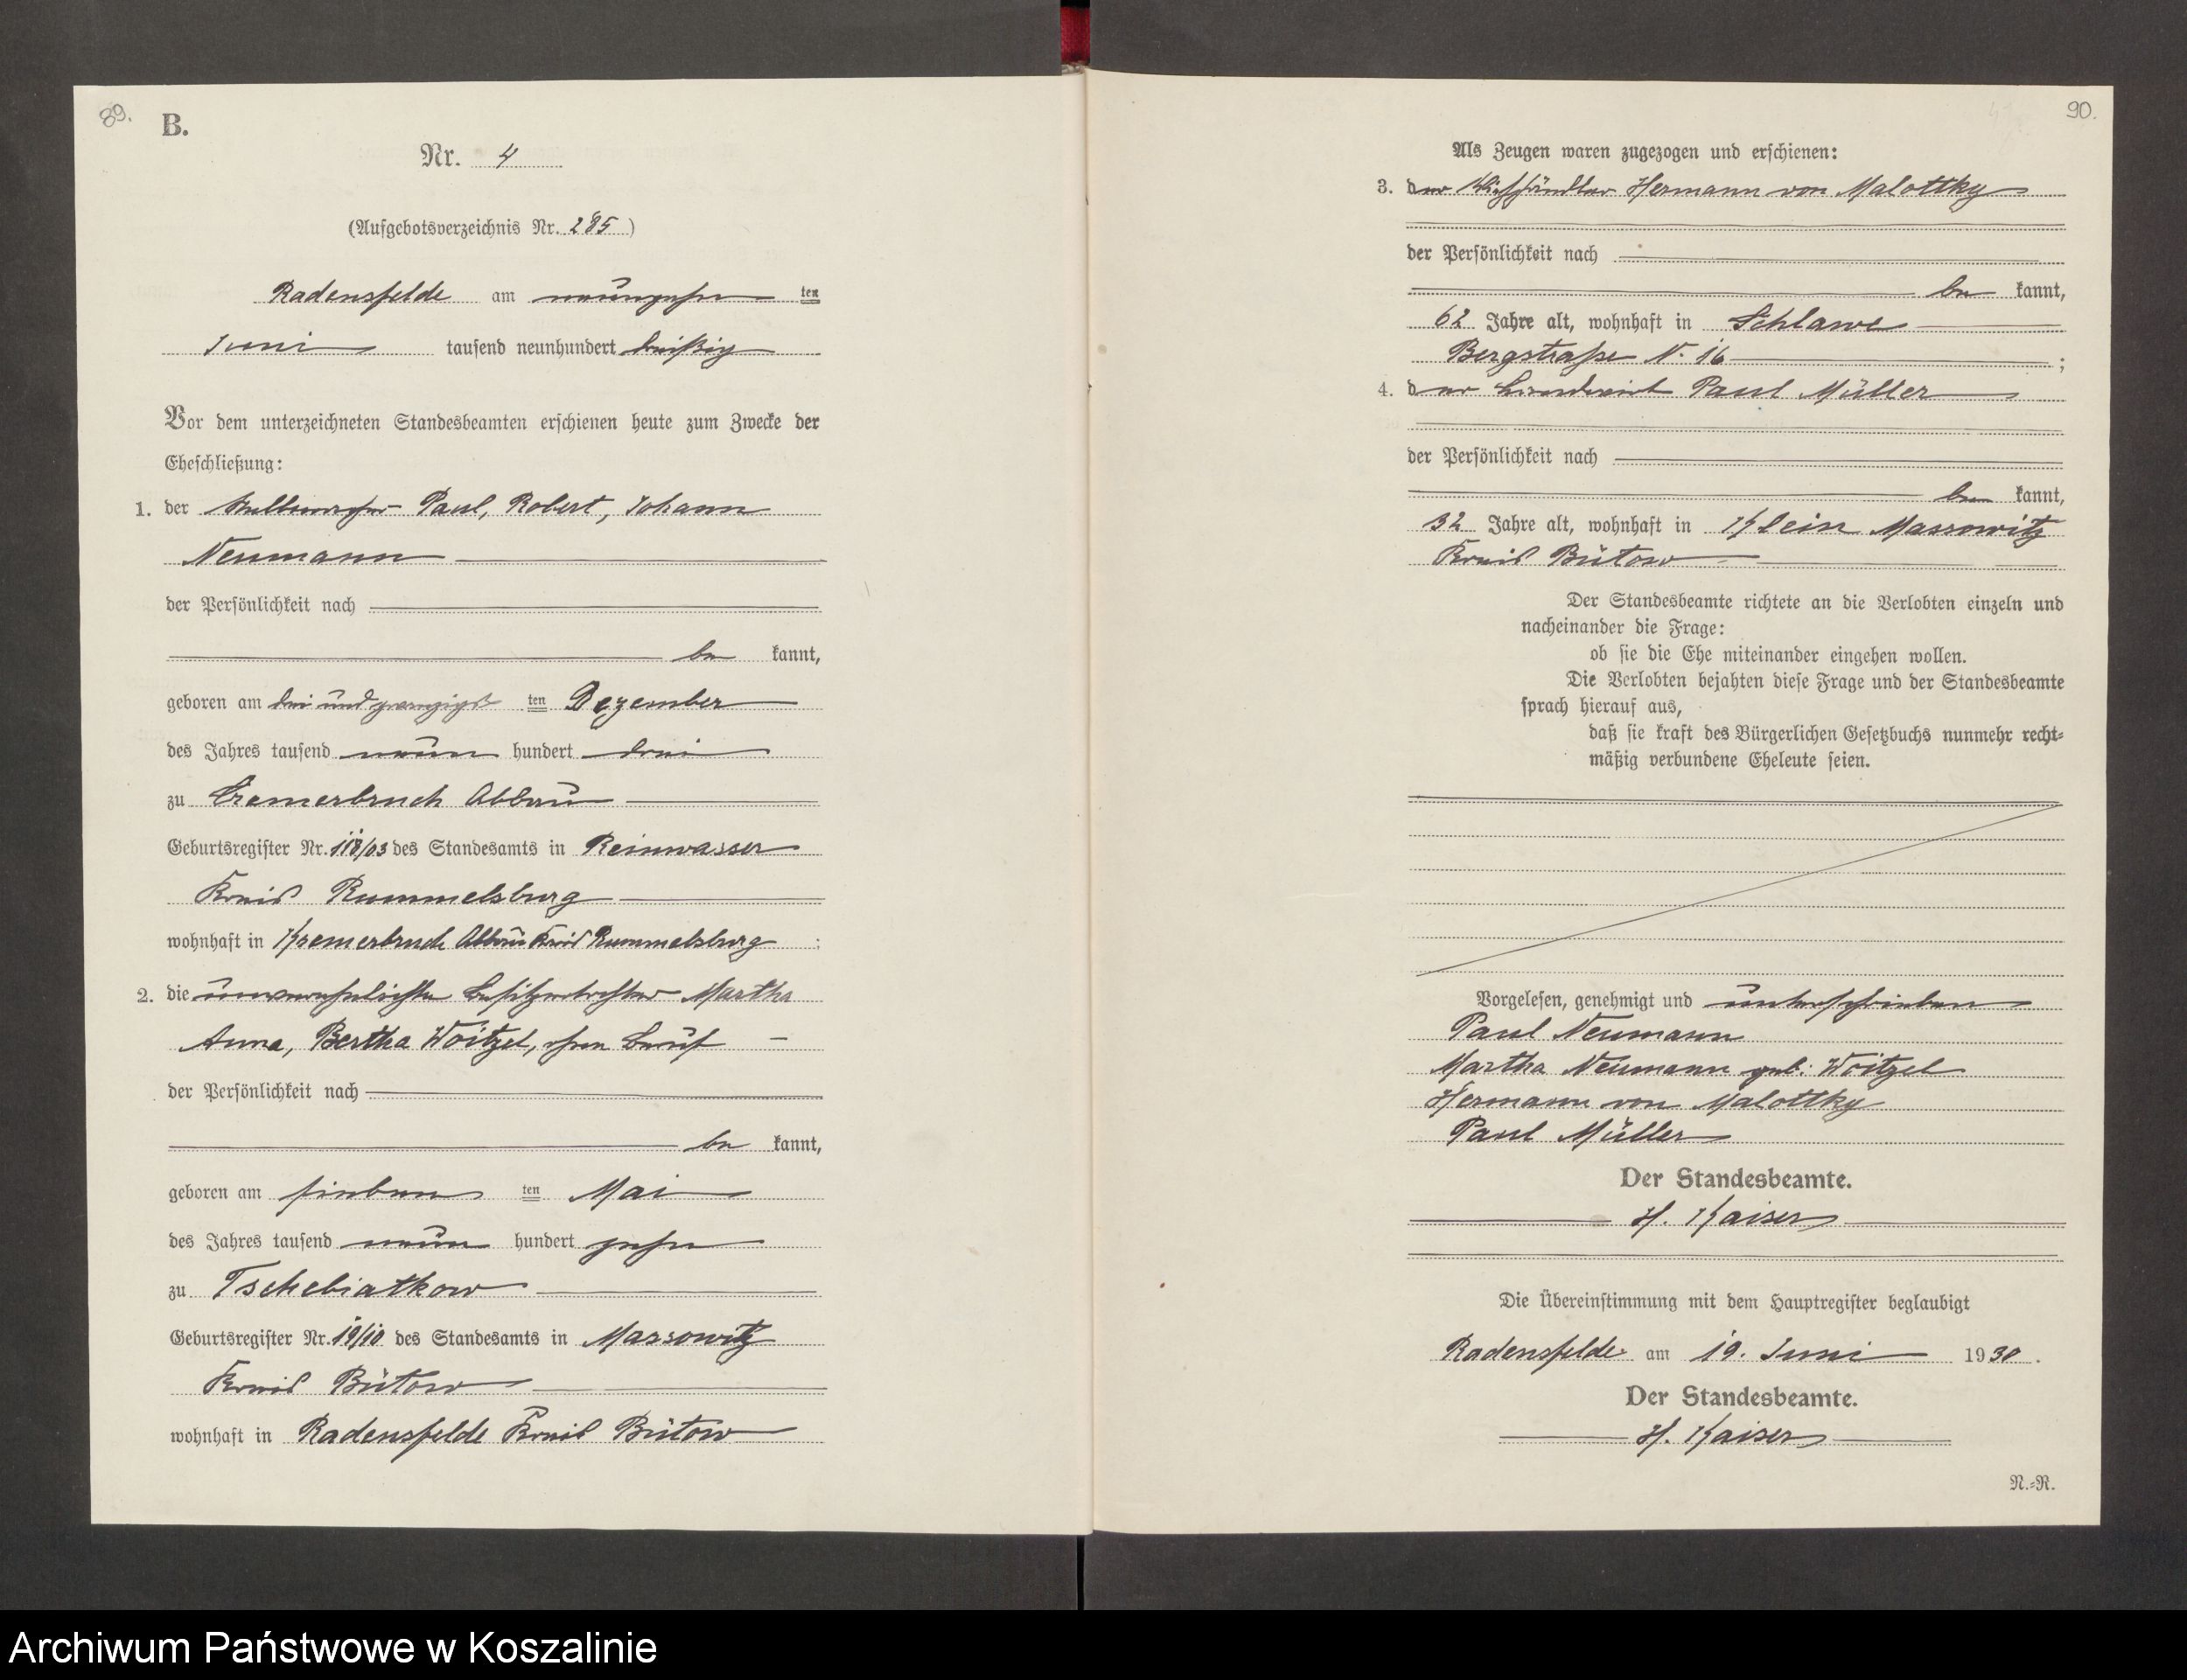 89.
B.
Nr. 4
(Aufgebotsverzeichnis Nr. 285)
Radensfelde am neunzehn ten
Juni tausend neunhundert dreißig
Vor dem unterzeichneten Standesbeamten erschienen heute zum Zwecke der
Eheschließung:
1. der Stellmacher Paul, Robert, Johann
Neumann
der Persönlichkeit nach
be kannt,
geboren am drei und zwanzigst ten Dezember
des Jahres tausend neun hundert drei
zu Cremerbruch Abbau
Geburtsregister Nr. 118/03 des Standesamts in Reinwasser
Kreis Rummelsburg
wohnhaft in Kremerbruch Abbau Kreis Rummelsburg ;
2. die unverehelichte Besitzertochter Martha
Anna, Bertha Woitzel, ohne Beruf
der Persönlichkeit nach
be kannt,
geboren am sieben ten Mai
des Jahres tausend neun hundert zehn
zu Tschebiatkow
Geburtsregister Nr. 19/10 des Standesamts in Massowitz
Kreis Bütow
wohnhaft in Radensfelde Kreis Bütow
90.
Als Zeugen waren zugezogen und erschienen:
3. der Viehhändler Hermann von Malottky
der Persönlichkeit nach
be kannt,
62 Jahre alt, wohnhaft in Schlawe
Bergstraße N. 16 ;
4. der Landwirt Paul Müller
der Persönlichkeit nach
be kannt,
32 Jahre alt, wohnhaft in Klein Massowitz
Kreis Bütow
Der Standesbeamte richtete an die Verlobten einzeln und
nacheinander die Frage:
ob sie die Ehe miteinander eingehen wollen.
Die Verlobten bejahten diese Frage und der Standesbeamte
sprach hierauf aus,
daß sie kraft des Bürgerlichen Gesetzbuchs nunmehr recht-
mäßig verbundene Eheleute seien.
Vorgelesen, genehmigt und unterschrieben
Paul Neumann
Martha Neumann geb. Woitzel
Hermann von Malottky
Paul Müller
Der Standesbeamte.
H. Kaiser
Die Übereinstimmung mit dem Hauptregister beglaubigt
Radensfelde am 19. Juni 1930.
Der Standesbeamte.
H. Kaiser
N.-R.
Archiwum Państwowe w Koszalinie